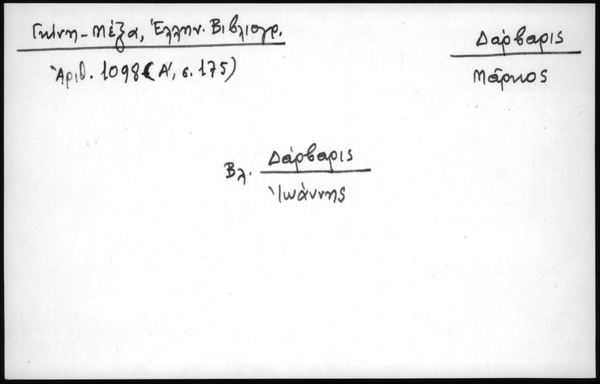 Γκίνη-Μέξα, Ἑλλην. Βιβλιογρ.
Ἀριθ. 1098 (Α', σ. 175)
Δάρβαρις
Μάρκος
Βλ. Δάρβαρις
Ἰωάννης